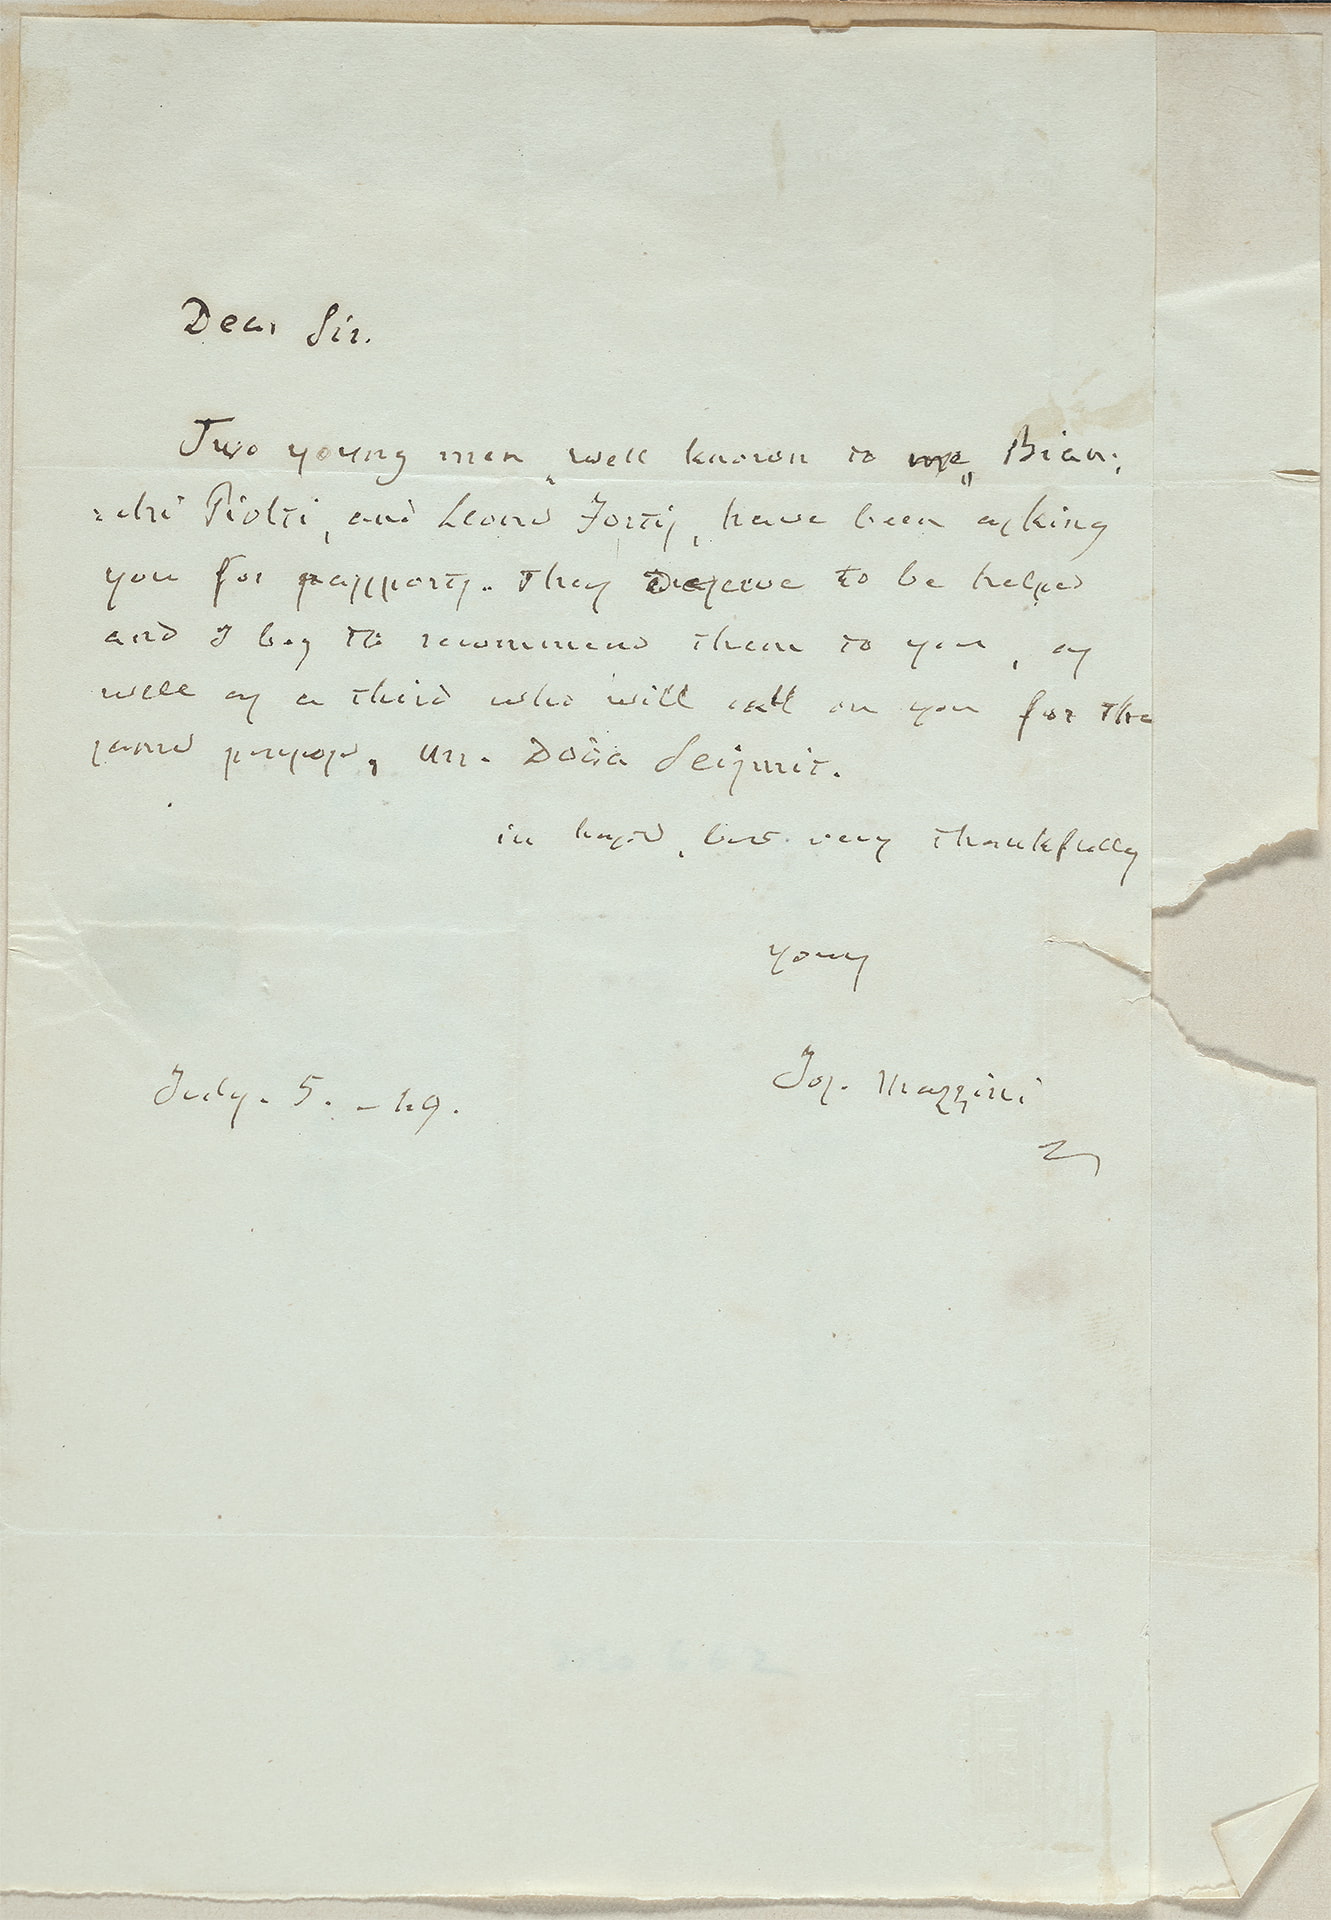 Dear Sir.
Two young men, well known to me, Bian:
:chi Piolti, and Leone Fortis, have been asking
you for passports. They deserve to be helped
and I beg to recommend them to you, as
well as a third who will call on you for the
same purpose, Mr. Doria Seismit.
in haste, but very thankfully
yours
Jos. Mazzini
July. 5. - 49.